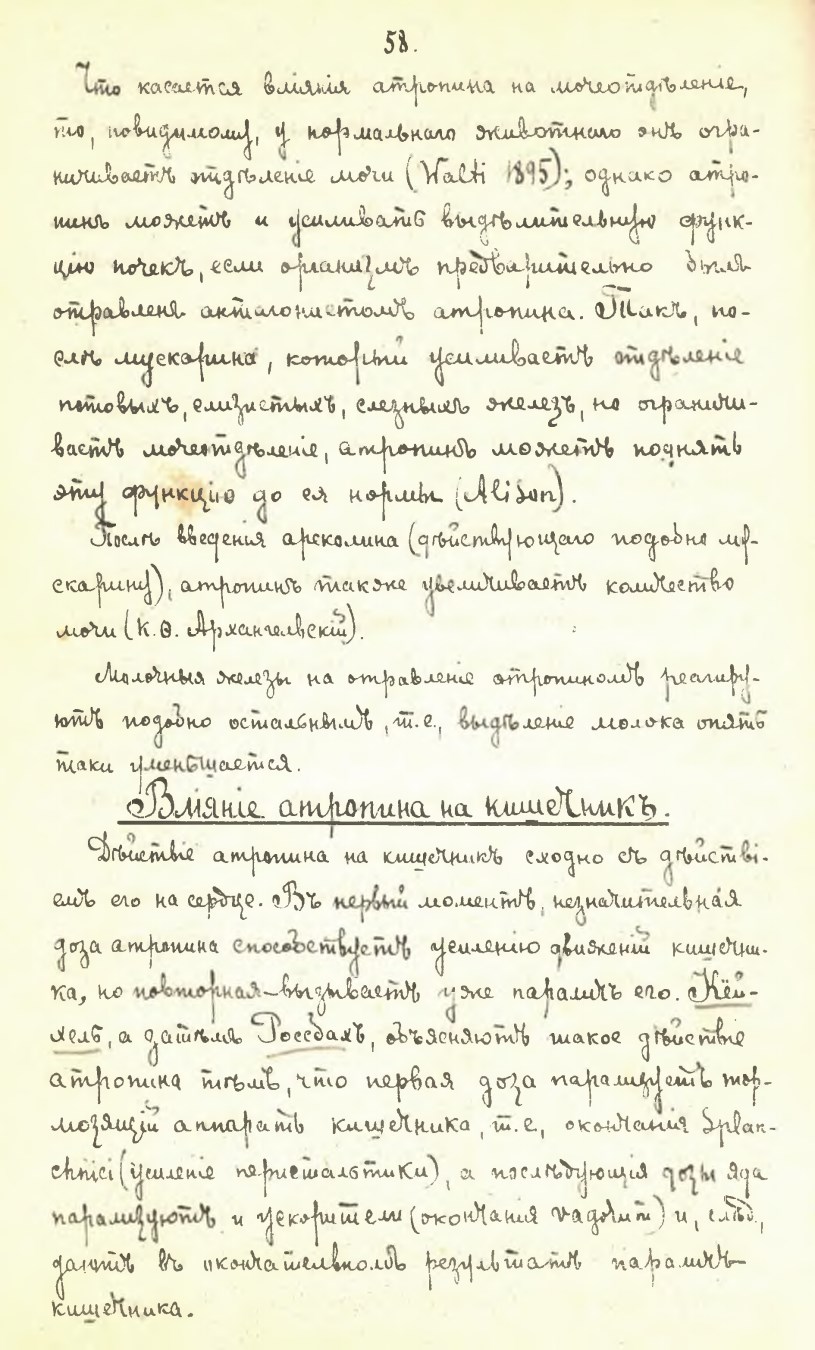 58.
Что касается вліянія атропина на мочеотдѣленіе,
то, повидимому, у нормальнаго животнаго онъ огра-
ничиваетъ отдѣленіе мочи (Walti 1895); однако атро-
пинъ можетъ и усиливать выдѣлительную функ-
цію почекъ, если организмъ предварительно былъ
отравленъ антагонистомъ атропина. Такъ, по-
слѣ мускарина, который усиливаетъ отдѣленіе
потовыхъ, слизистыхъ, слезныхъ железъ, но ограничи-
ваетъ мочеотдѣленіе, атропинъ можетъ поднять
эту функцію до ея нормы (Alison).
Послѣ введенія ареколина (дѣйствующаго подобно му-
скарину), атропинъ также увеличиваетъ количество
мочи (К. Ѳ. Архангельскій).
Молочныя железы на отравленіе атропиномъ реагиру-
ютъ подобно остальнымъ, т.е., выдѣленіе молока опять
таки уменьшается.
Вліяніе атропина на кишечникъ.
Дѣйствіе атропина на кишечникъ сходно съ дѣйстві-
емъ его на сердце. Въ первый моментъ, незначительная
доза атропина способствуетъ усиленію движеній кишечни-
ка, но повторная—вызываетъ уже параличъ его. Кёй-
хель, а затѣмъ Россбахъ, объясняютъ такое дѣйствіе
атропина тѣмъ, что первая доза парализуетъ тор-
мозящій аппаратъ кишечника, т.е., окончанія Splan-
chnici (усиленіе перистальтики), а послѣдующія дозы яда
парализуютъ и ускорители (окончанія vagorum) и, слѣд.,
даютъ въ окончательномъ результатѣ параличъ
кишечника.